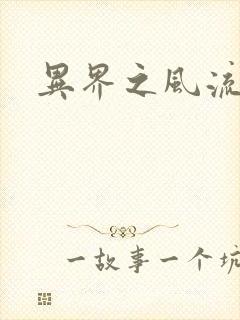 異界之風流
一故事一个坑